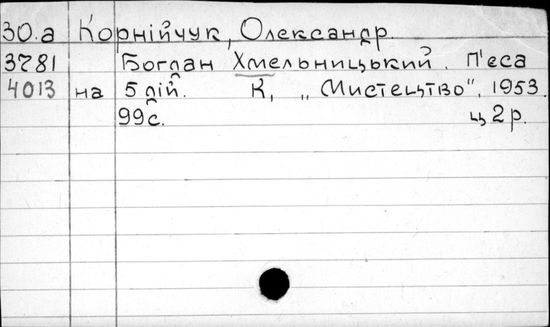 30.а Корнійчук, Олександр.
3781 Богдан Хмельницький. П'еса
4013 на 5 дій. К, „Мистецтво", 1953.
99с. ц 2 р.